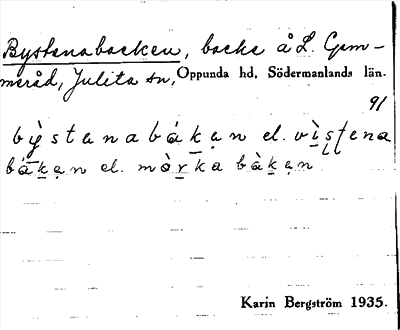 Bystenabacken, backe å L. Gem-
meråd, Julita sn, Oppunda hd, Södermanlands län.
91
bỳstenabákan el. vìstena
bákan el. mòrka bàkan
Karin Bergström 1935.